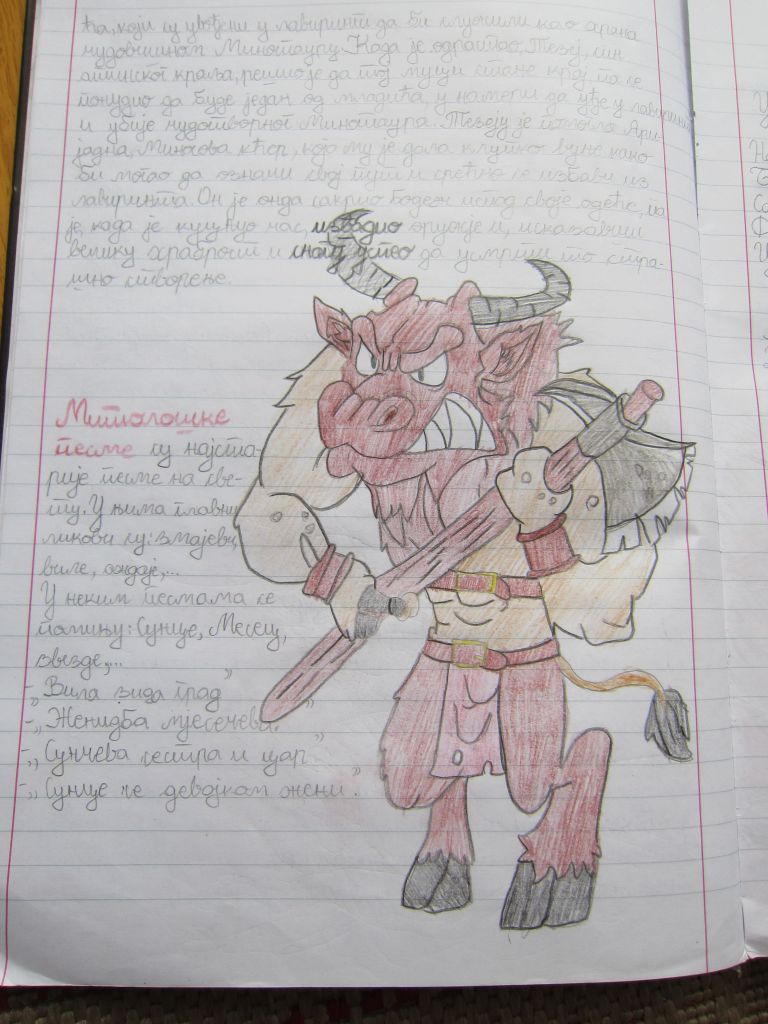 ћа, који су увођени у лавиринт да би служили као храна
чудовишном Минотауру. Када је одрастао Тезеј, син
атинског краља, решио је да тој муци стане крај, па се
понудио да буде један од младића, у намери да уђе у лавиринт
и убије чудотворног Минотаура. Тезеју је помогла Ари-
јадна, Миносова кћер, која му је дала клупко вуне како
би могао да означи свој пут и срећно се избави из
лавиринта. Он је онда сакрио бодеж испод своје одеће, па
је, када је куцнуо час, извадио оружје и, исказавши
велику храброст и снагу, успео да усмрти то стра-
шно створење.
Митолошке
песме су најста-
рије песме на све-
ту. У њима главни
ликови су: змајеви,
виле, аждаје,...
У неким песмама се
помињу: Сунце, Месец,
звезде,...
-„Вила зида град”
-„Женидба мјесечева.”
-„Сунчева сестра и цар”
-„Сунце се девојком жени”.